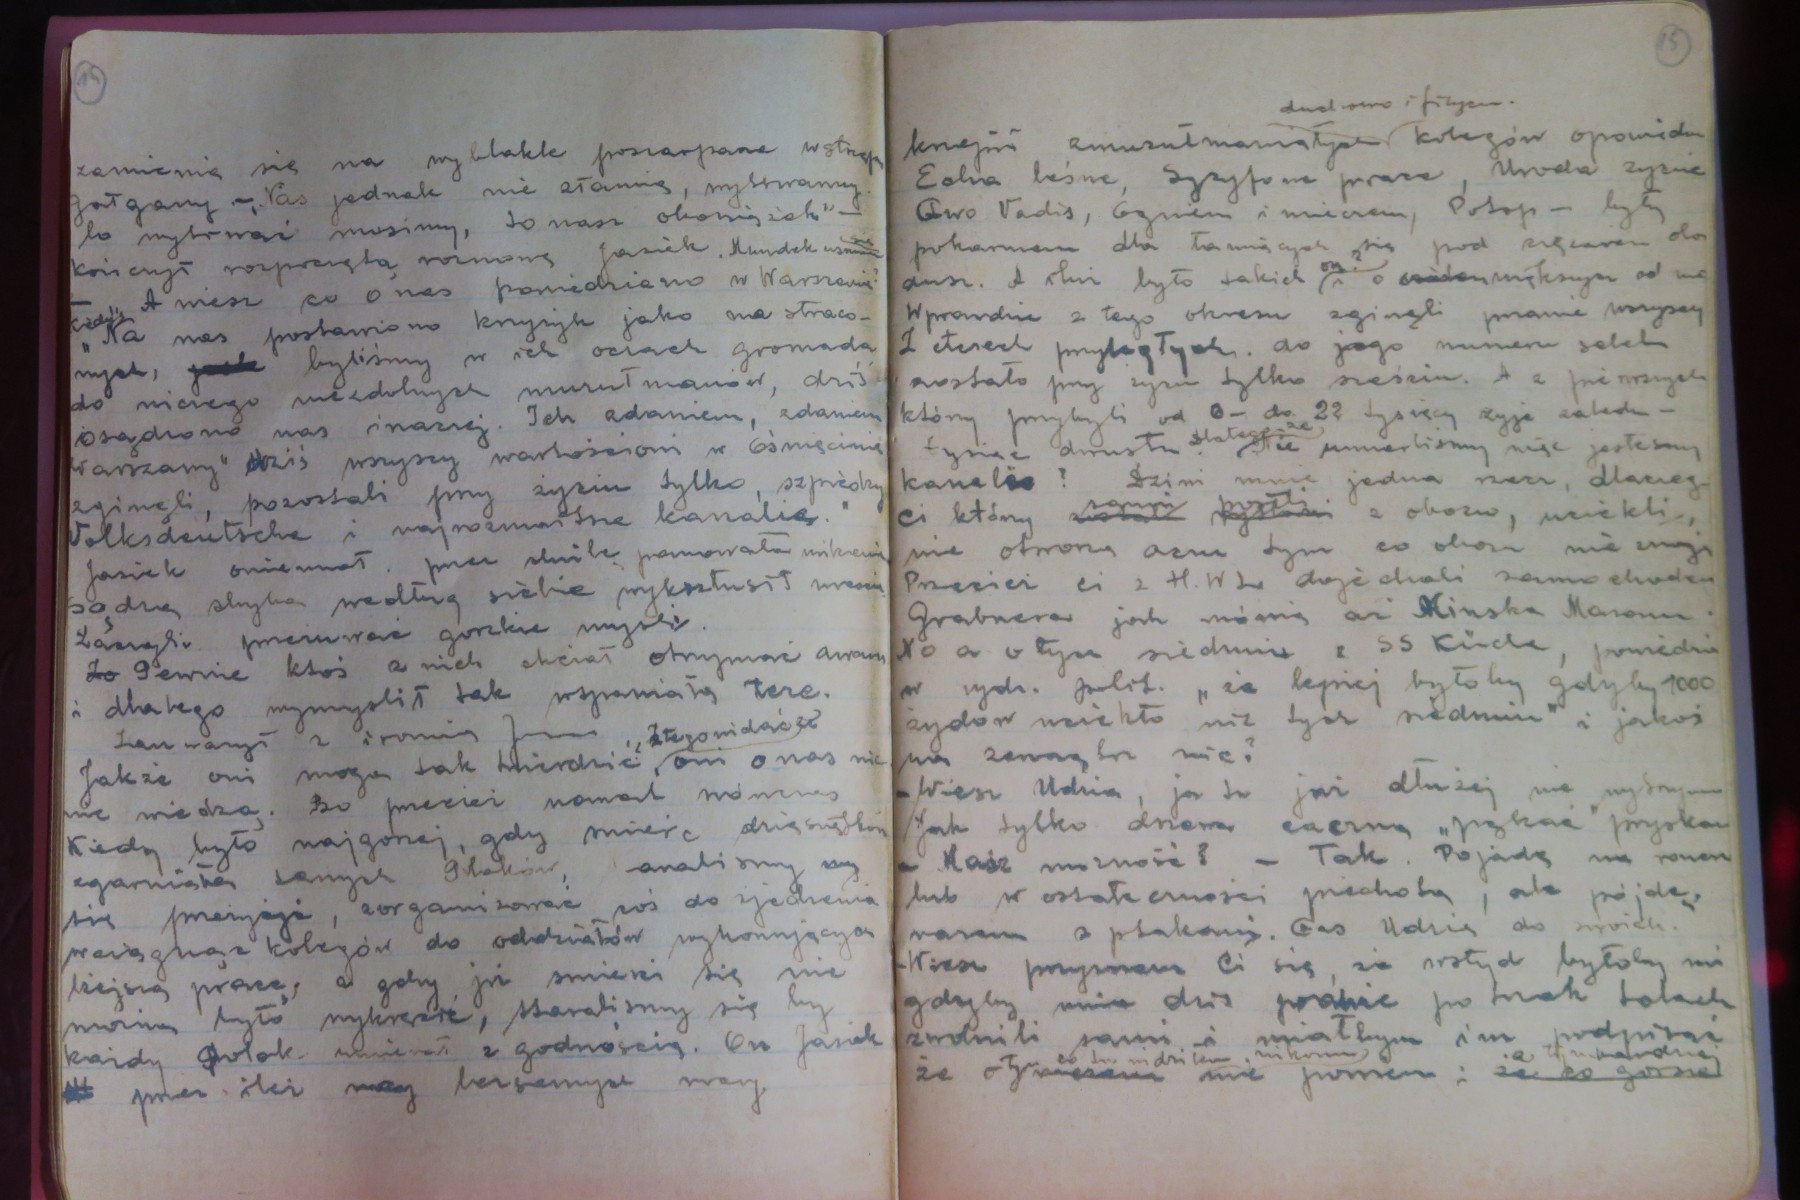 14
zamienią się na wyblakłe poszarpane wstrzępy
gałgany – „Nas jednak nie złamią, wytrwamy.
bo wytrwać musimy, to nasz obowiązek" –
kończył rozpoczętą rozmowę Jasiek. Mundek
– A wiesz co o nas powiedziano w Warszawie?
kiedyś
„Na nas postawiono krzyżyk jako na straco-
nych, byliśmy w ich oczach gromadą
do niczego niezdolnych muzułmanów, dziś
osądzono nas inaczej. Ich zdaniem, zdaniem
Warszawy" dziś wszyscy wartościowi w Oświęcimiu
zginęli, pozostali przy życiu tylko, szpiedzy
Volksdeutsche i najrozmaitsze kanalie."
Jasiek oniemiał. przez chwilę panowało milczenie
sądzę chyba według siebie wykrztusił wreszcie
Zaczęli przeżuwać gorzkie myśli.
To Pewnie ktoś z nich chciał otrzymać awans
i dlatego wymyślił tak wspaniałą tezę.
Zauważył z ironią
z tego widać że
Jakże oni mogą tak twierdzić, oni o nas nic
nie wiedzą. Bo przecież nawet wówczas
Kiedy było najgorzej, gdy śmierć dziesiątkami
zgarniała samych Polaków,
się przeżyć, zorganizować coś do zjedzenia
wciągnąć kolegów do oddziałów wykonujących
lżejszą pracę, a gdy już śmierci się nie
można było wykręcić, staraliśmy się by
każdy Polak umierał z godnością. On Jasiek
przez ileż bezsennych nocy
15
duchowo i fizycz.
kolegów opowiada
Echa leśne, Syzyfowe prace, Uroda życia
Qwo Vadis, Ogniem i mieczem, Potop – były
pokarmem dla łamiących się pod ciężarem
dusz. A ilu było takich jak on? i o większym od
Wprawdzie z tego okresu zginęli prawie wszyscy
Z czterech przyległych do jego numeru setek
zostało przy życiu tylko sześciu. A z pierwszych
który przybyli od 0 – do 22 tysięcy żyje zaledw –
tysiąc dwustu. Dlatego że Nie umarliśmy więc jesteśmy
kanalie? Dziwi mnie jedna rzecz, dlaczego
ci którzy poszli z obozu, uciekli,
nie otworzą oczu tym co obozu nie znają
Przecież ci z H.W.L. dojechali samochodem
Grabnera jak mówią aż Mińska Mazow.
No a o tych siedmiu z SS Küche, powiedział
w wydz. polit. „że lepiej byłoby gdyby 1000
żydów uciekło niż tych siedmiu" i jakoś
na zewnątrz nic?
– Wiesz Udzia, ja tu już dłużej nie wytrzym
Jak tylko drzewa zaczną „pękać" pryskam
– Masz możność? – Tak. Pojadę na rower
lub w ostateczności piechotą, ale pójdę,
razem z ptakami. Czas Udzia do swoich."
– Wiesz przyznam Ci się, że wstyd byłoby mi
gdyby mnie dziś prawie po trzech latach
zwolnili sami i miałbym im podpisać
że o tym co tu widziałem nikomu nie powiem i